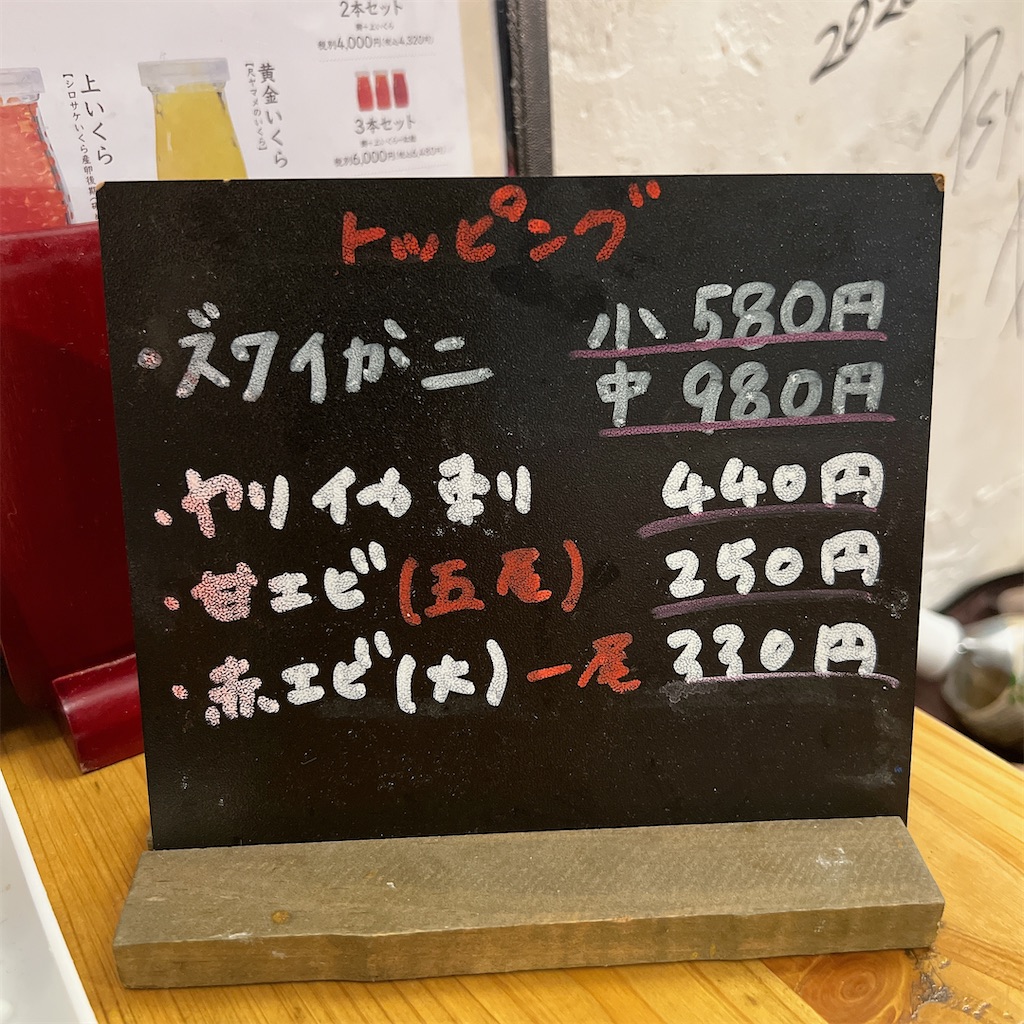 2本セット
税別4,000円(税込4,320円)
上いくら
【シロサケいくら産卵後期
黄金いくら
【尺ヤマメのいくら】
3本セット
税別6,000円(税込6,480円)
202
トッピング
・ズワイガニ 小 580円
中 980円
・ヤリイカ刺 440円
・甘エビ(五尾) 250円
・赤エビ(大)一尾 330円